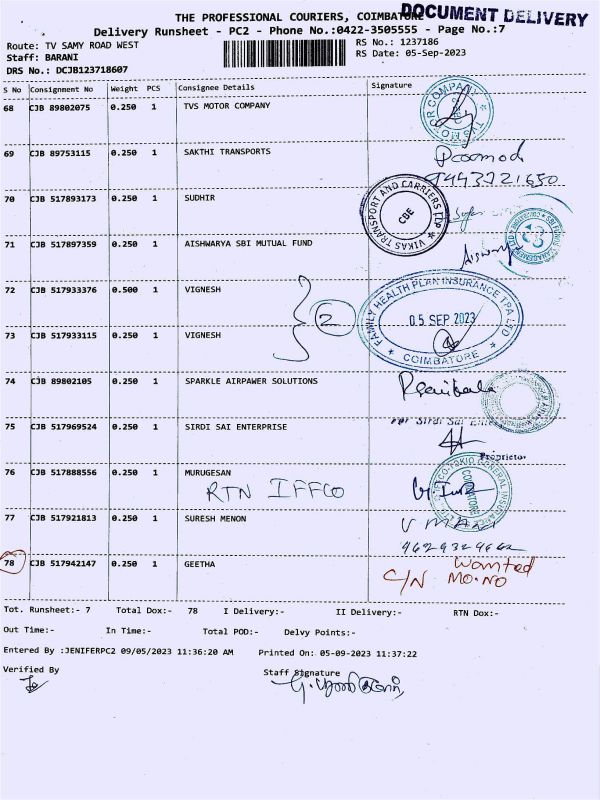 THE PROFESSIONAL COURIERS, COIMBATORE
DOCUMENT DELIVERY
Delivery Runsheet - PC2 - Phone No.:0422-3505555 - Page No.:7
Route: TV SAMY ROAD WEST
RS No.: 1237186
Staff: BARANI
RS Date: 05-Sep-2023
DRS No.: DCJB123718607
S No Consignment No Weight PCS Consignee Details Signature
68 CJB 89802075 0.250 1 TVS MOTOR COMPANY
69 CJB 89753115 0.250 1 SAKTHI TRANSPORTS
Pramod
9443721650
70 CJB 517893173 0.250 1 SUDHIR
VIKAS TRANSPORT AND CARRIERS LLP
CBE
71 CJB 517897359 0.250 1 AISHWARYA SBI MUTUAL FUND
Aiswarya
72 CJB 517933376 0.500 1 VIGNESH
2
FAMILY HEALTH PLAN INSURANCE TPA LTD
05 SEP 2023
COIMBATORE
73 CJB 517933115 0.250 1 VIGNESH
74 CJB 89802105 0.250 1 SPARKLE AIRPAWER SOLUTIONS
75 CJB 517969524 0.250 1 SIRDI SAI ENTERPRISE
For Sirdi Sai Enter
Proprietor
76 CJB 517888556 0.250 1 MURUGESAN
RTN IFFCO
COIMBATORE
77 CJB 517921813 0.250 1 SURESH MENON
V MANI
78 CJB 517942147 0.250 1 GEETHA
Wanted
C/N MO.NO
Tot. Runsheet:- 7 Total Dox:- 78 I Delivery:- II Delivery:- RTN Dox:-
Out Time:- In Time:- Total POD:- Delvy Points:-
Entered By :JENIFERPC2 09/05/2023 11:36:20 AM Printed On: 05-09-2023 11:37:22
Verified By Staff Signature